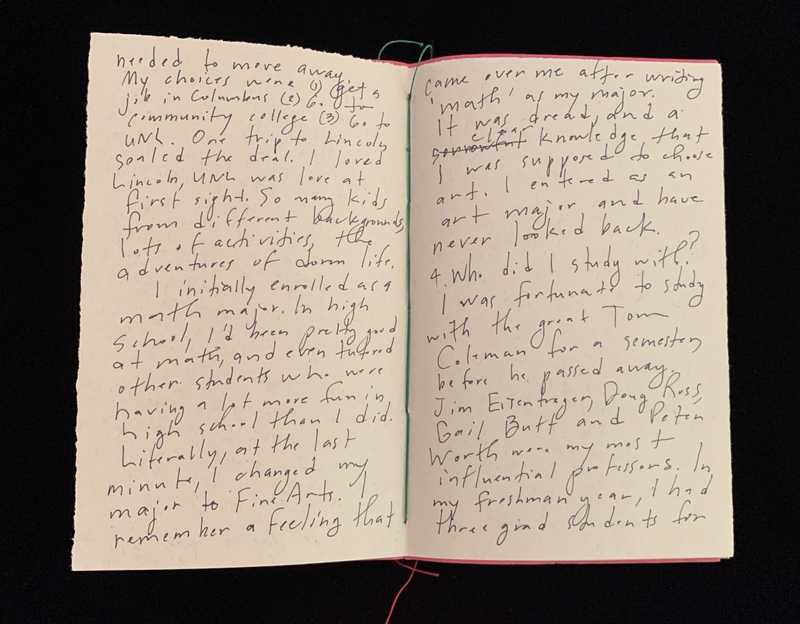 needed to move away.
My choices were (1) get a
job in Columbus (2) Go to
community college (3) Go to
UNL. One trip to Lincoln
sealed the deal. I loved
Lincoln, UNL was love at
first sight. So many kids
from different backgrounds,
lots of activities, the
adventures of dorm life.
I initially enrolled as a
math major. In high
school, I'd been pretty good
at math, and even tutored
other students who were
having a lot more fun in
high school than I did.
Literally, at the last
minute, I changed my
major to Fine Arts. I
remember a feeling that
came over me after writing
'math' as my major.
It was dread, and a
clear
sorrowful knowledge that
I was supposed to choose
art. I entered as an
art major and have
never looked back.
4. Who did I study with?
I was fortunate to study
with the great Tom
Coleman for a semester
before he passed away.
Jim Eisentrager, Doug Ross,
Gail Butt and Peter
Worth were my most
influential professors. In
my freshman year, I had
three grad students for